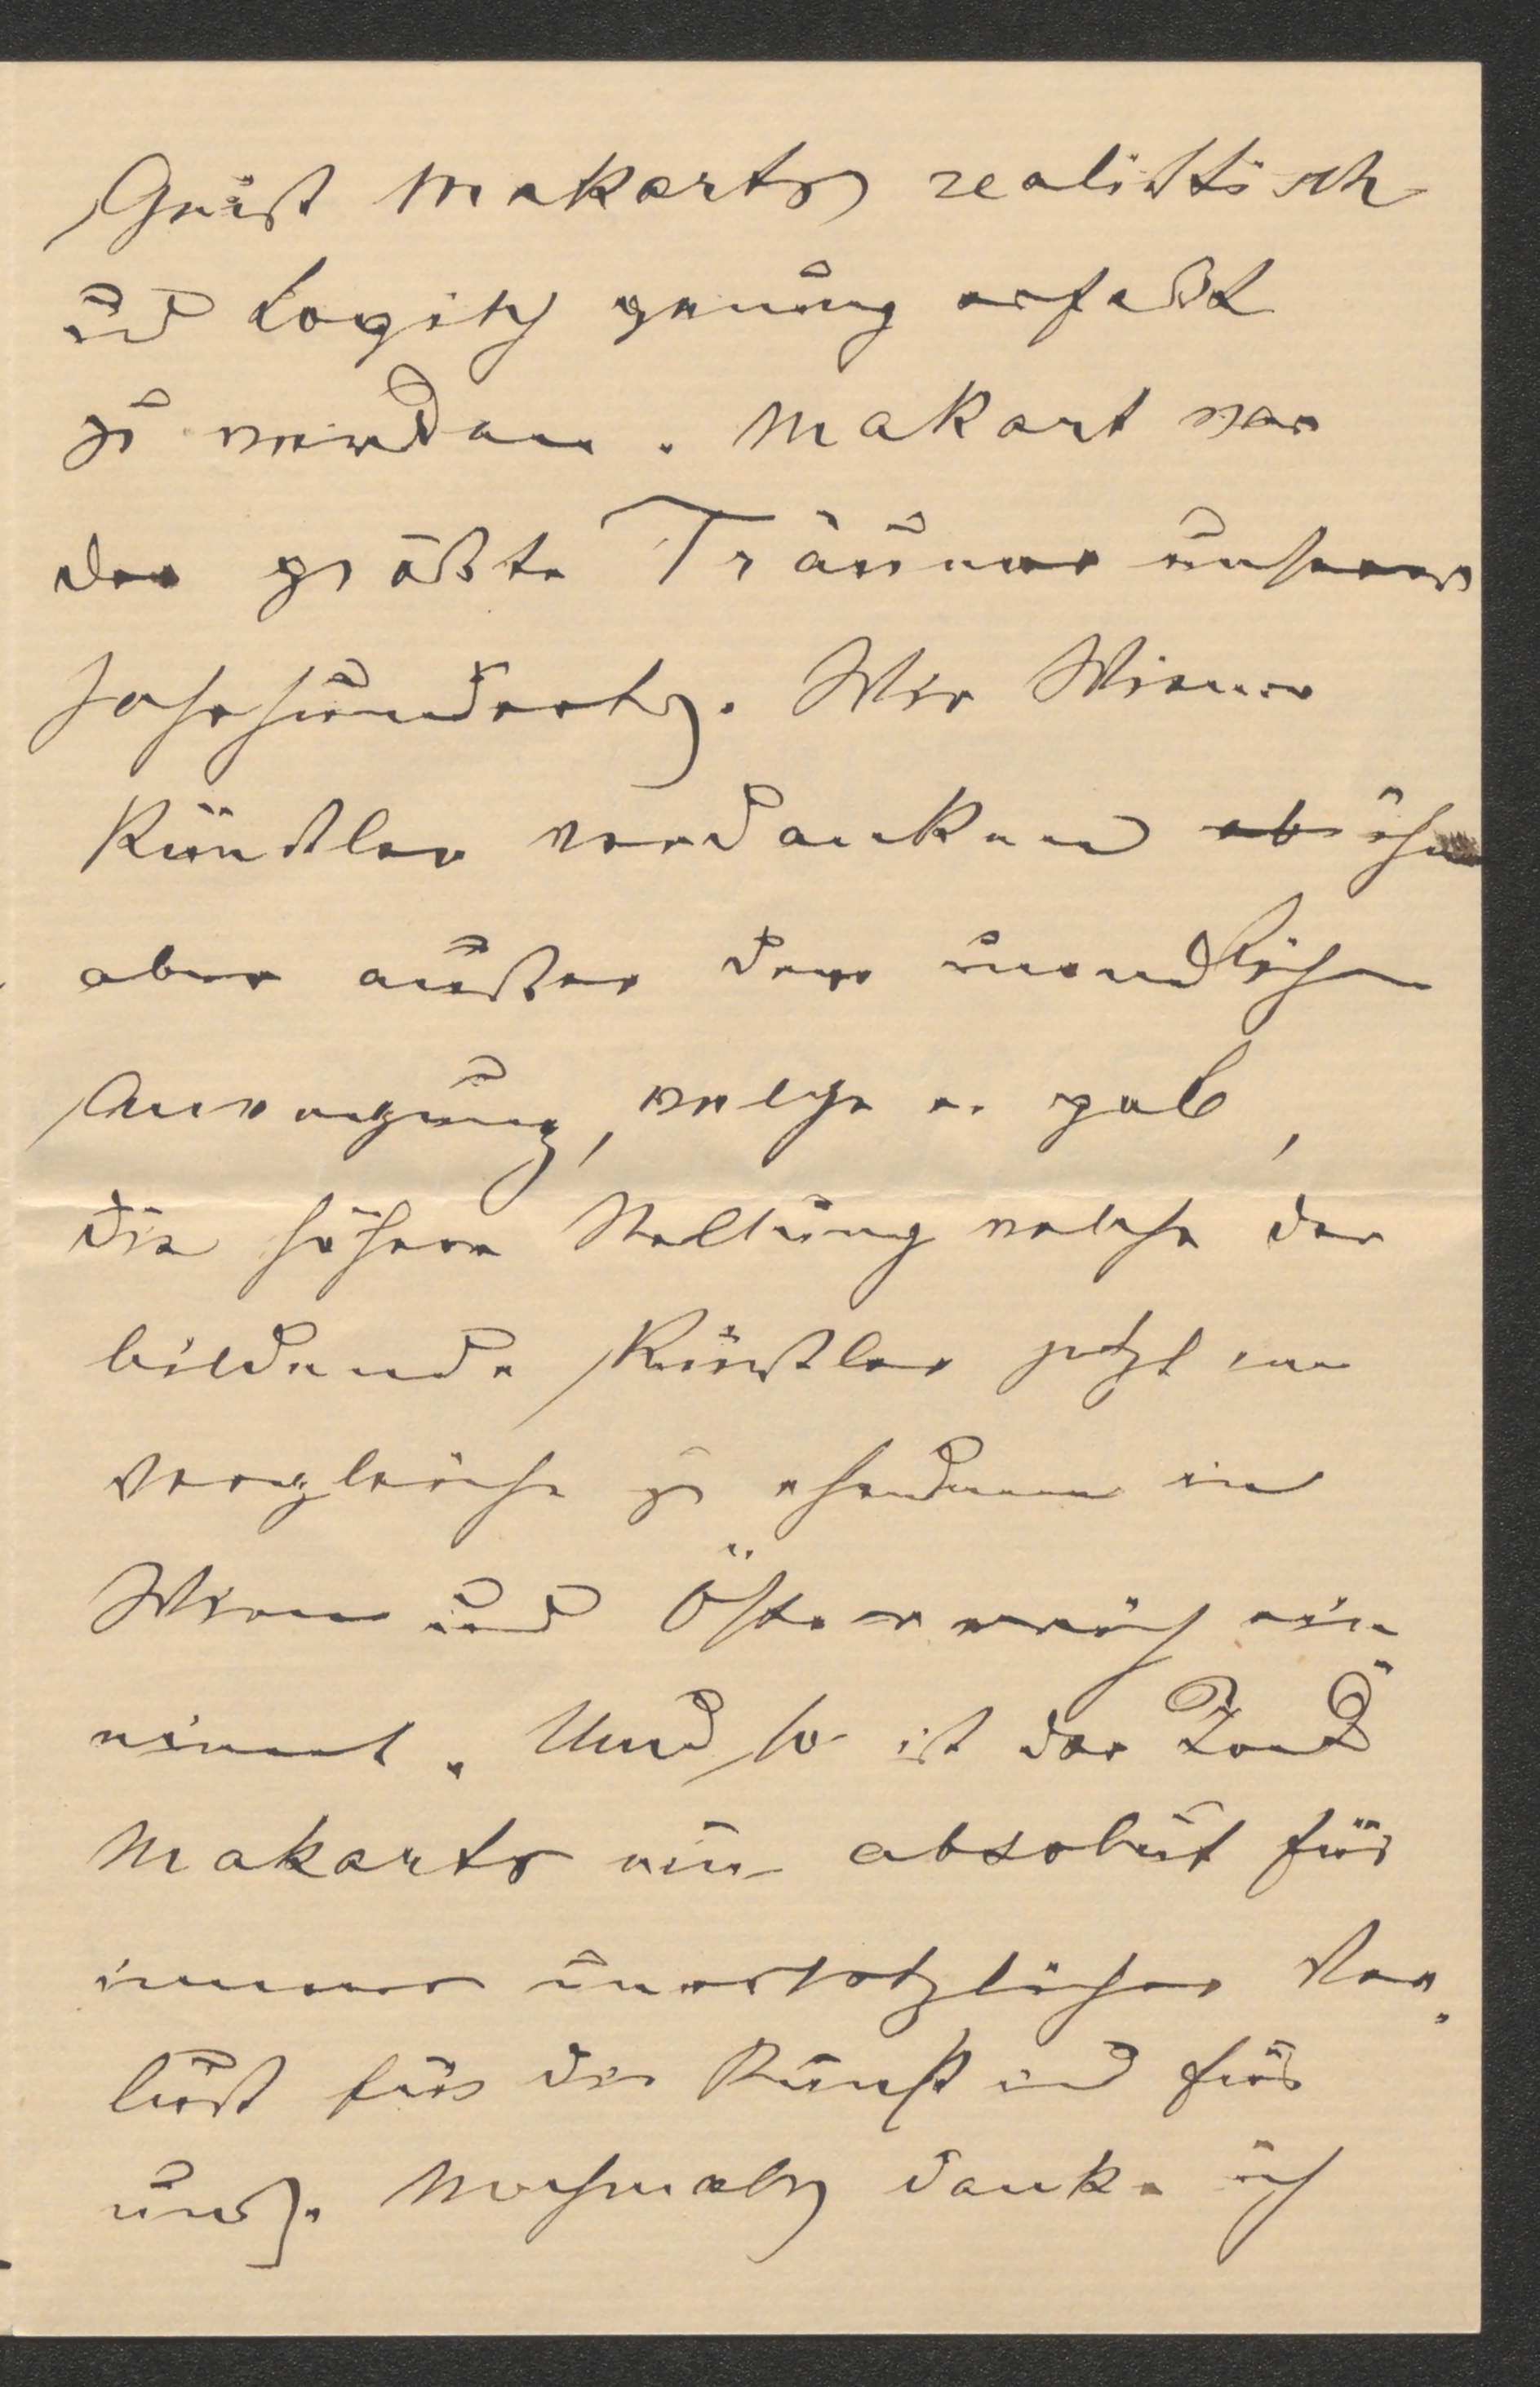 Geist Makarts realistisch
und logisch genung erfaßt
zu werden. Makart war
der größte Träumer unseres
Jahrhunderts. Wir Wiener
Künstler verdanken ihm
aber außer der unendlichen
Anregung, welche er gab,
die höhere Stellung welche der
bildende Künstler jetzt im
Vergleiche zu ehedem in
Wien und Österreich ein
nimmt. Und so ist der Tod
Makarts ein absolut für
immer unersetzlicher Ver
lust für die Kunst und für
uns. Nochmals danke ich